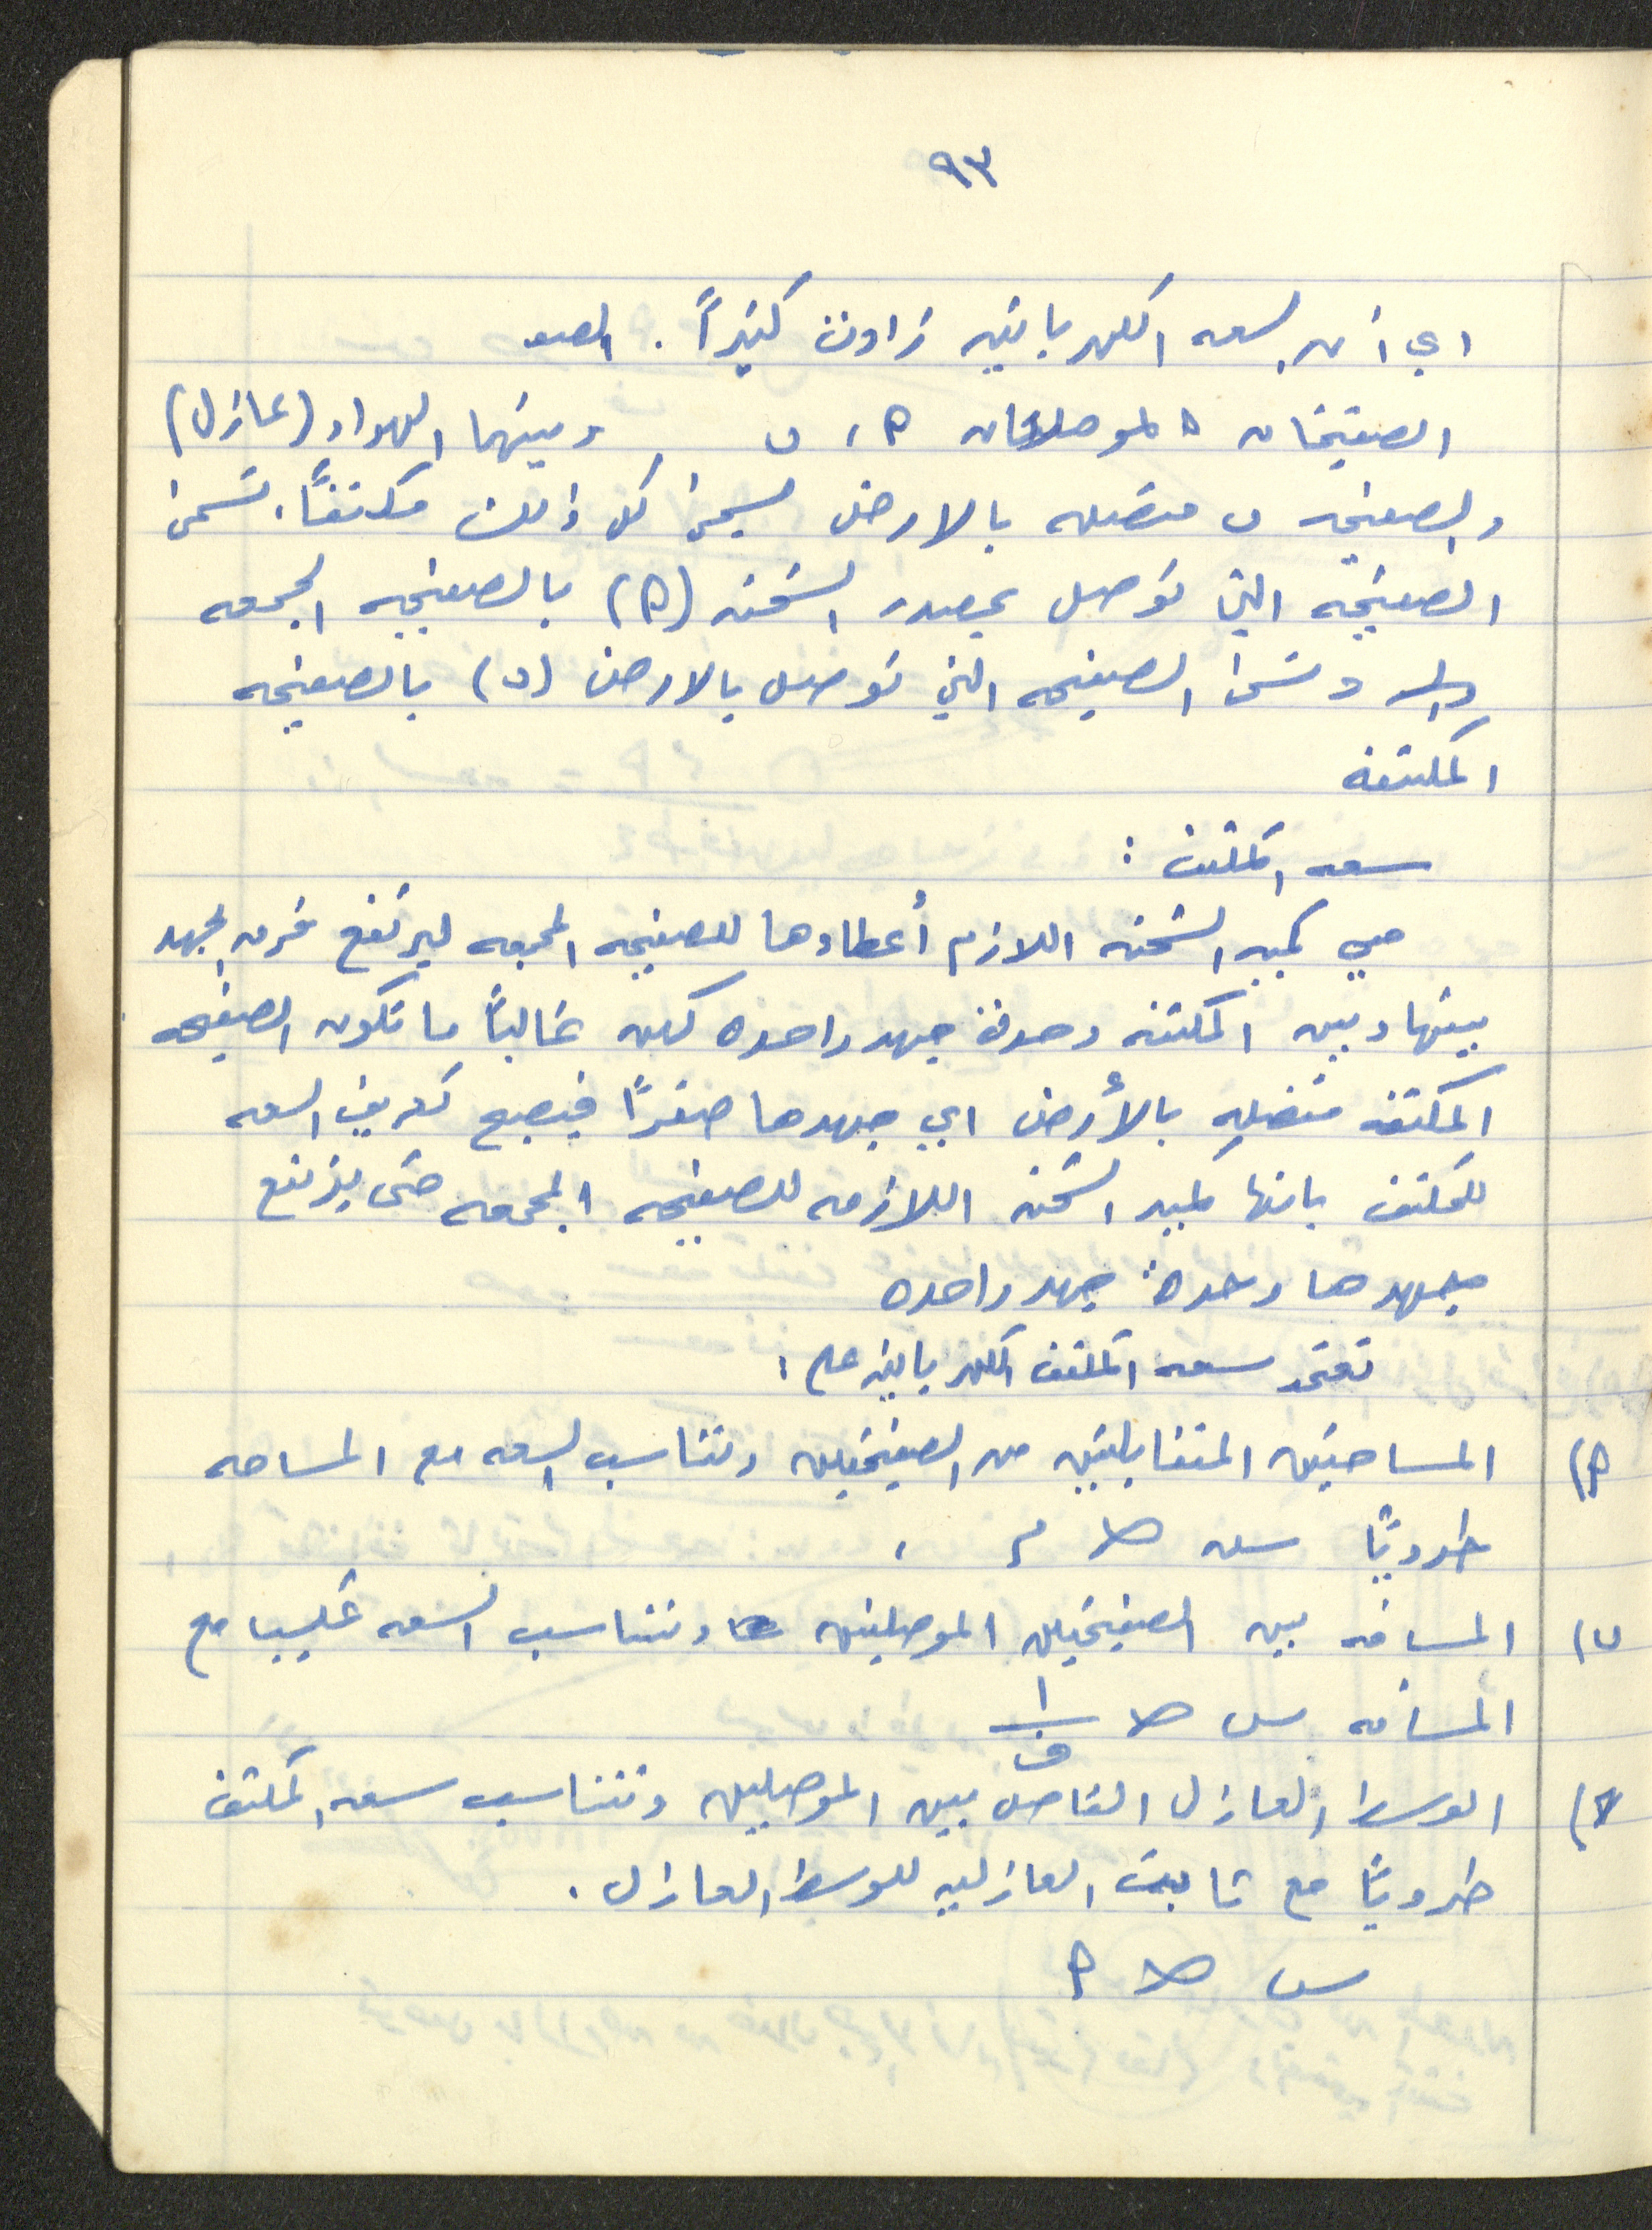 ٩٣
اي أن السعه الكهربائيه زادت كثيراً . الصو
الصفيحتان الموصلتان P ، ب وبينهما الهواء (عازل)
والصفيحه ب متصله بالارض يسمى كل ذلك مكثفاً ، تسمى
الصفيحه التي توصل بمصدر الشحنه (P) بالصفيحه المجمعه
وال وتسمى الصفيحه التي توصل بالارض (ب) بالصفيحه
المكثفه
سعه المكثف :
هي كميه الشحنه اللازم أعطاءها للصفيحه المجمعه ليرتفع فرق الجهد
بينها وبين المكثفه وحدة جهد واحده لكن غالباً ما تكون الصفيحه
المكثفه متصله بالأرض اي جهدها صفراً فيصبح تعريف السعه
للمكثف بانها كميه الشحنه اللازمه للصفيحه المجمعه حتى يرتفع
جهدها وحدة جهد واحده
تعتمد سعه المكثف الكهربائيه على :
P) المساحتين المتقابلتين من الصفيحتين وتتناسب السعه مع المساحه
طردياً سعه ∝ م ،
ب) المسافه بين الصفيحتين الموصلتين وتتناسب السعه عكسيا مع
المسافه س ∝ ١/ف
ج) الوسط العازل الفاصل بين الموصلين وتتناسب سعه المكثف
طردياً مع ثابت العازليه للوسط العازل .
س ∝ P